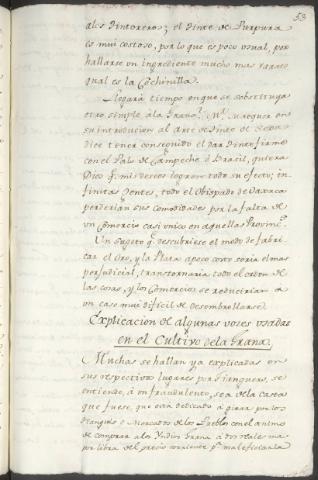 53
ales Tintoreros; y el Tinte de Purpura
es mui costoso, por lo que es poco usual, por
hallarse un ingrediente mucho mas varato
qual es la Cochinilla.
Llegará tiempo en que se sobstituya
otro simple á la Grana. Mr. Macquer en
su introducion al Arte de Tinte de
dice tener conseguido el dar Tinte firme
con el Palo de Campeche ó Brasil, quiera
Dios q. mis deseos logren todo su efecto; in-
finitas Gentes, todo el Obispado de Oaxaca
perderian sus comodidades por la falta de
un Comercio casi unico en aquellas Provinc.s
Un sugeto q. descubriese el modo de fabri-
car el Oro, y la Plata á poco costo seria el mas
perjudicial, transtornaria todo el orden de
las cosas, y los Comercios se reducirian á
un caos mui dificil de desembrollarse.
Explicacion de algunas voces usadas
en el Cultivo de la Grana.
Muchas se hallan ya explicadas en
sus respectivos lugares por Tiangueros, se
entiende, á un fraudulento, sea de la casta
que fuese, que está dedicado á girar por los
Tianguis ó Mercados de los Pueblos con el animo
de comprar á los Yndios Grana á dos reales ma
por libra del precio corriente p.a maleficiarla